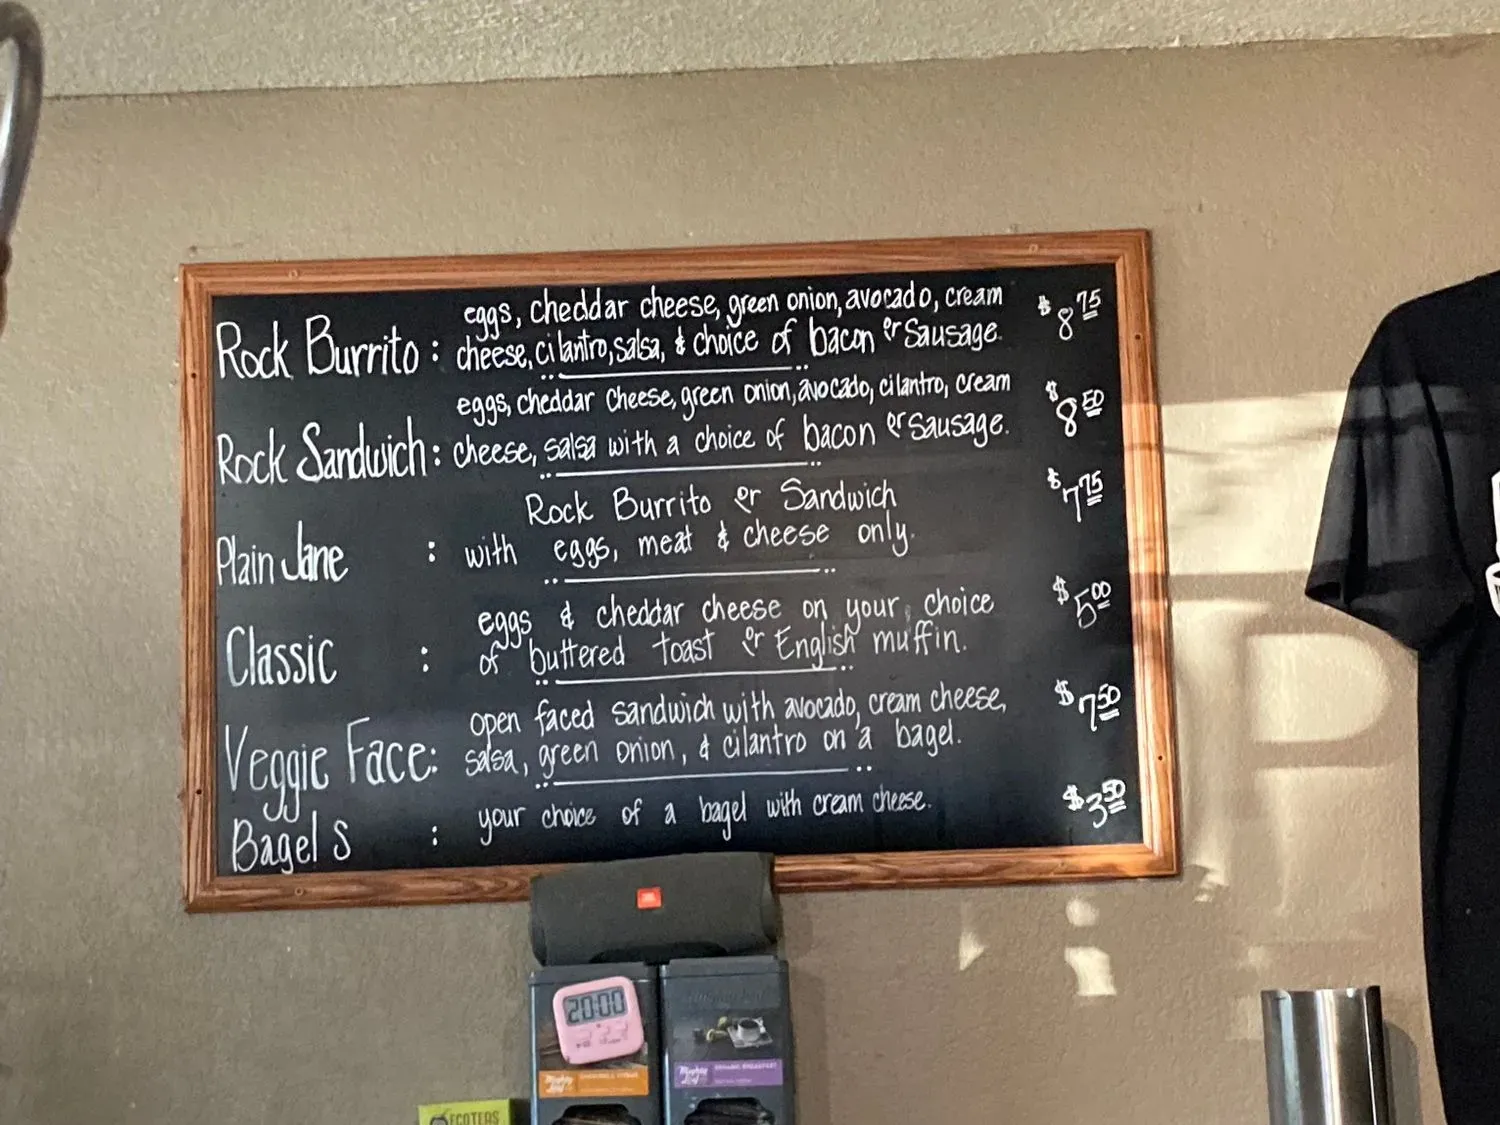 eggs, cheddar cheese, green onion, avocado, cream $8 75
Rock Burrito : cheese, cilantro, salsa, & choice of bacon or Sausage.
eggs, cheddar cheese, green onion, avocado, cilantro, cream $8 50
Rock Sandwich : cheese, salsa with a choice of bacon or Sausage.
Rock Burrito or Sandwich $7 75
Plain Jane : with eggs, meat & cheese only.
eggs & cheddar cheese on your choice $5 00
Classic : of buttered toast or English muffin.
open faced sandwich with avocado, cream cheese, $7 50
Veggie Face: salsa, green onion, & cilantro on a bagel.
Bagel S : your choice of a bagel with cream cheese. $3 50
JBL
20:00
Mighty Leaf
Mighty Leaf ORGANIC BREAKFAST
ECOTEAS